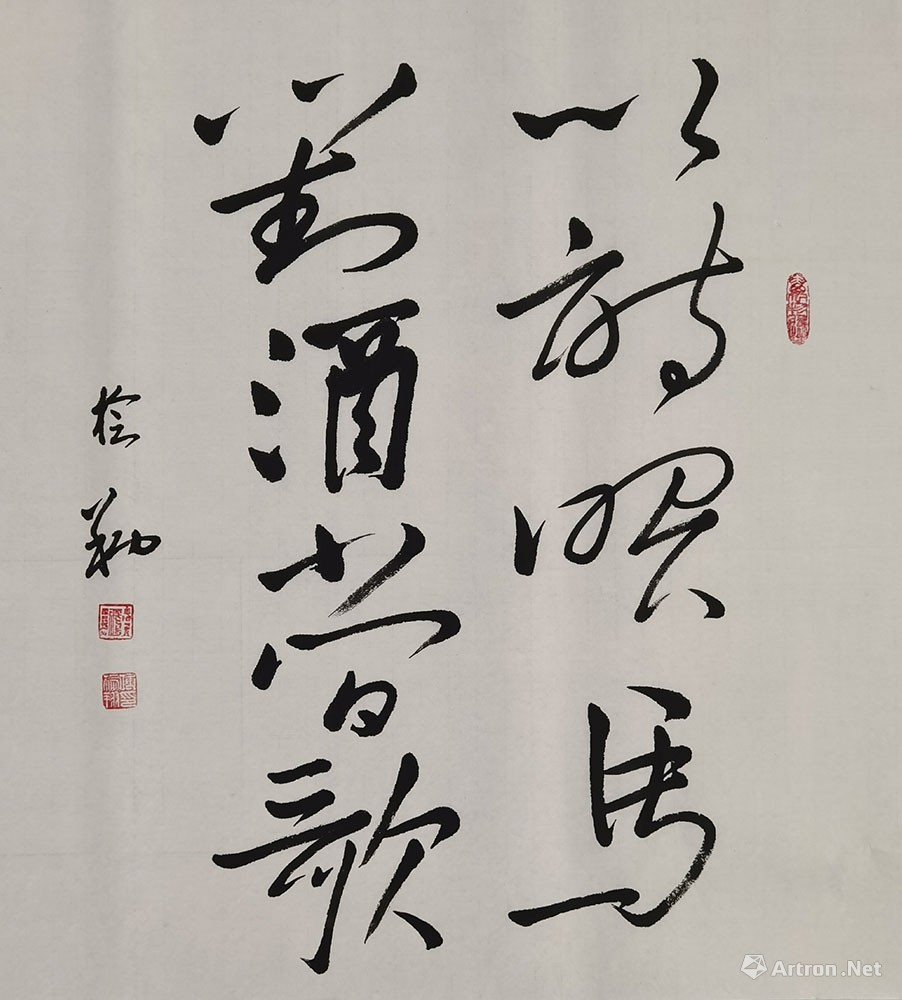 以詩喂馬
對酒當歌
Artron.Net